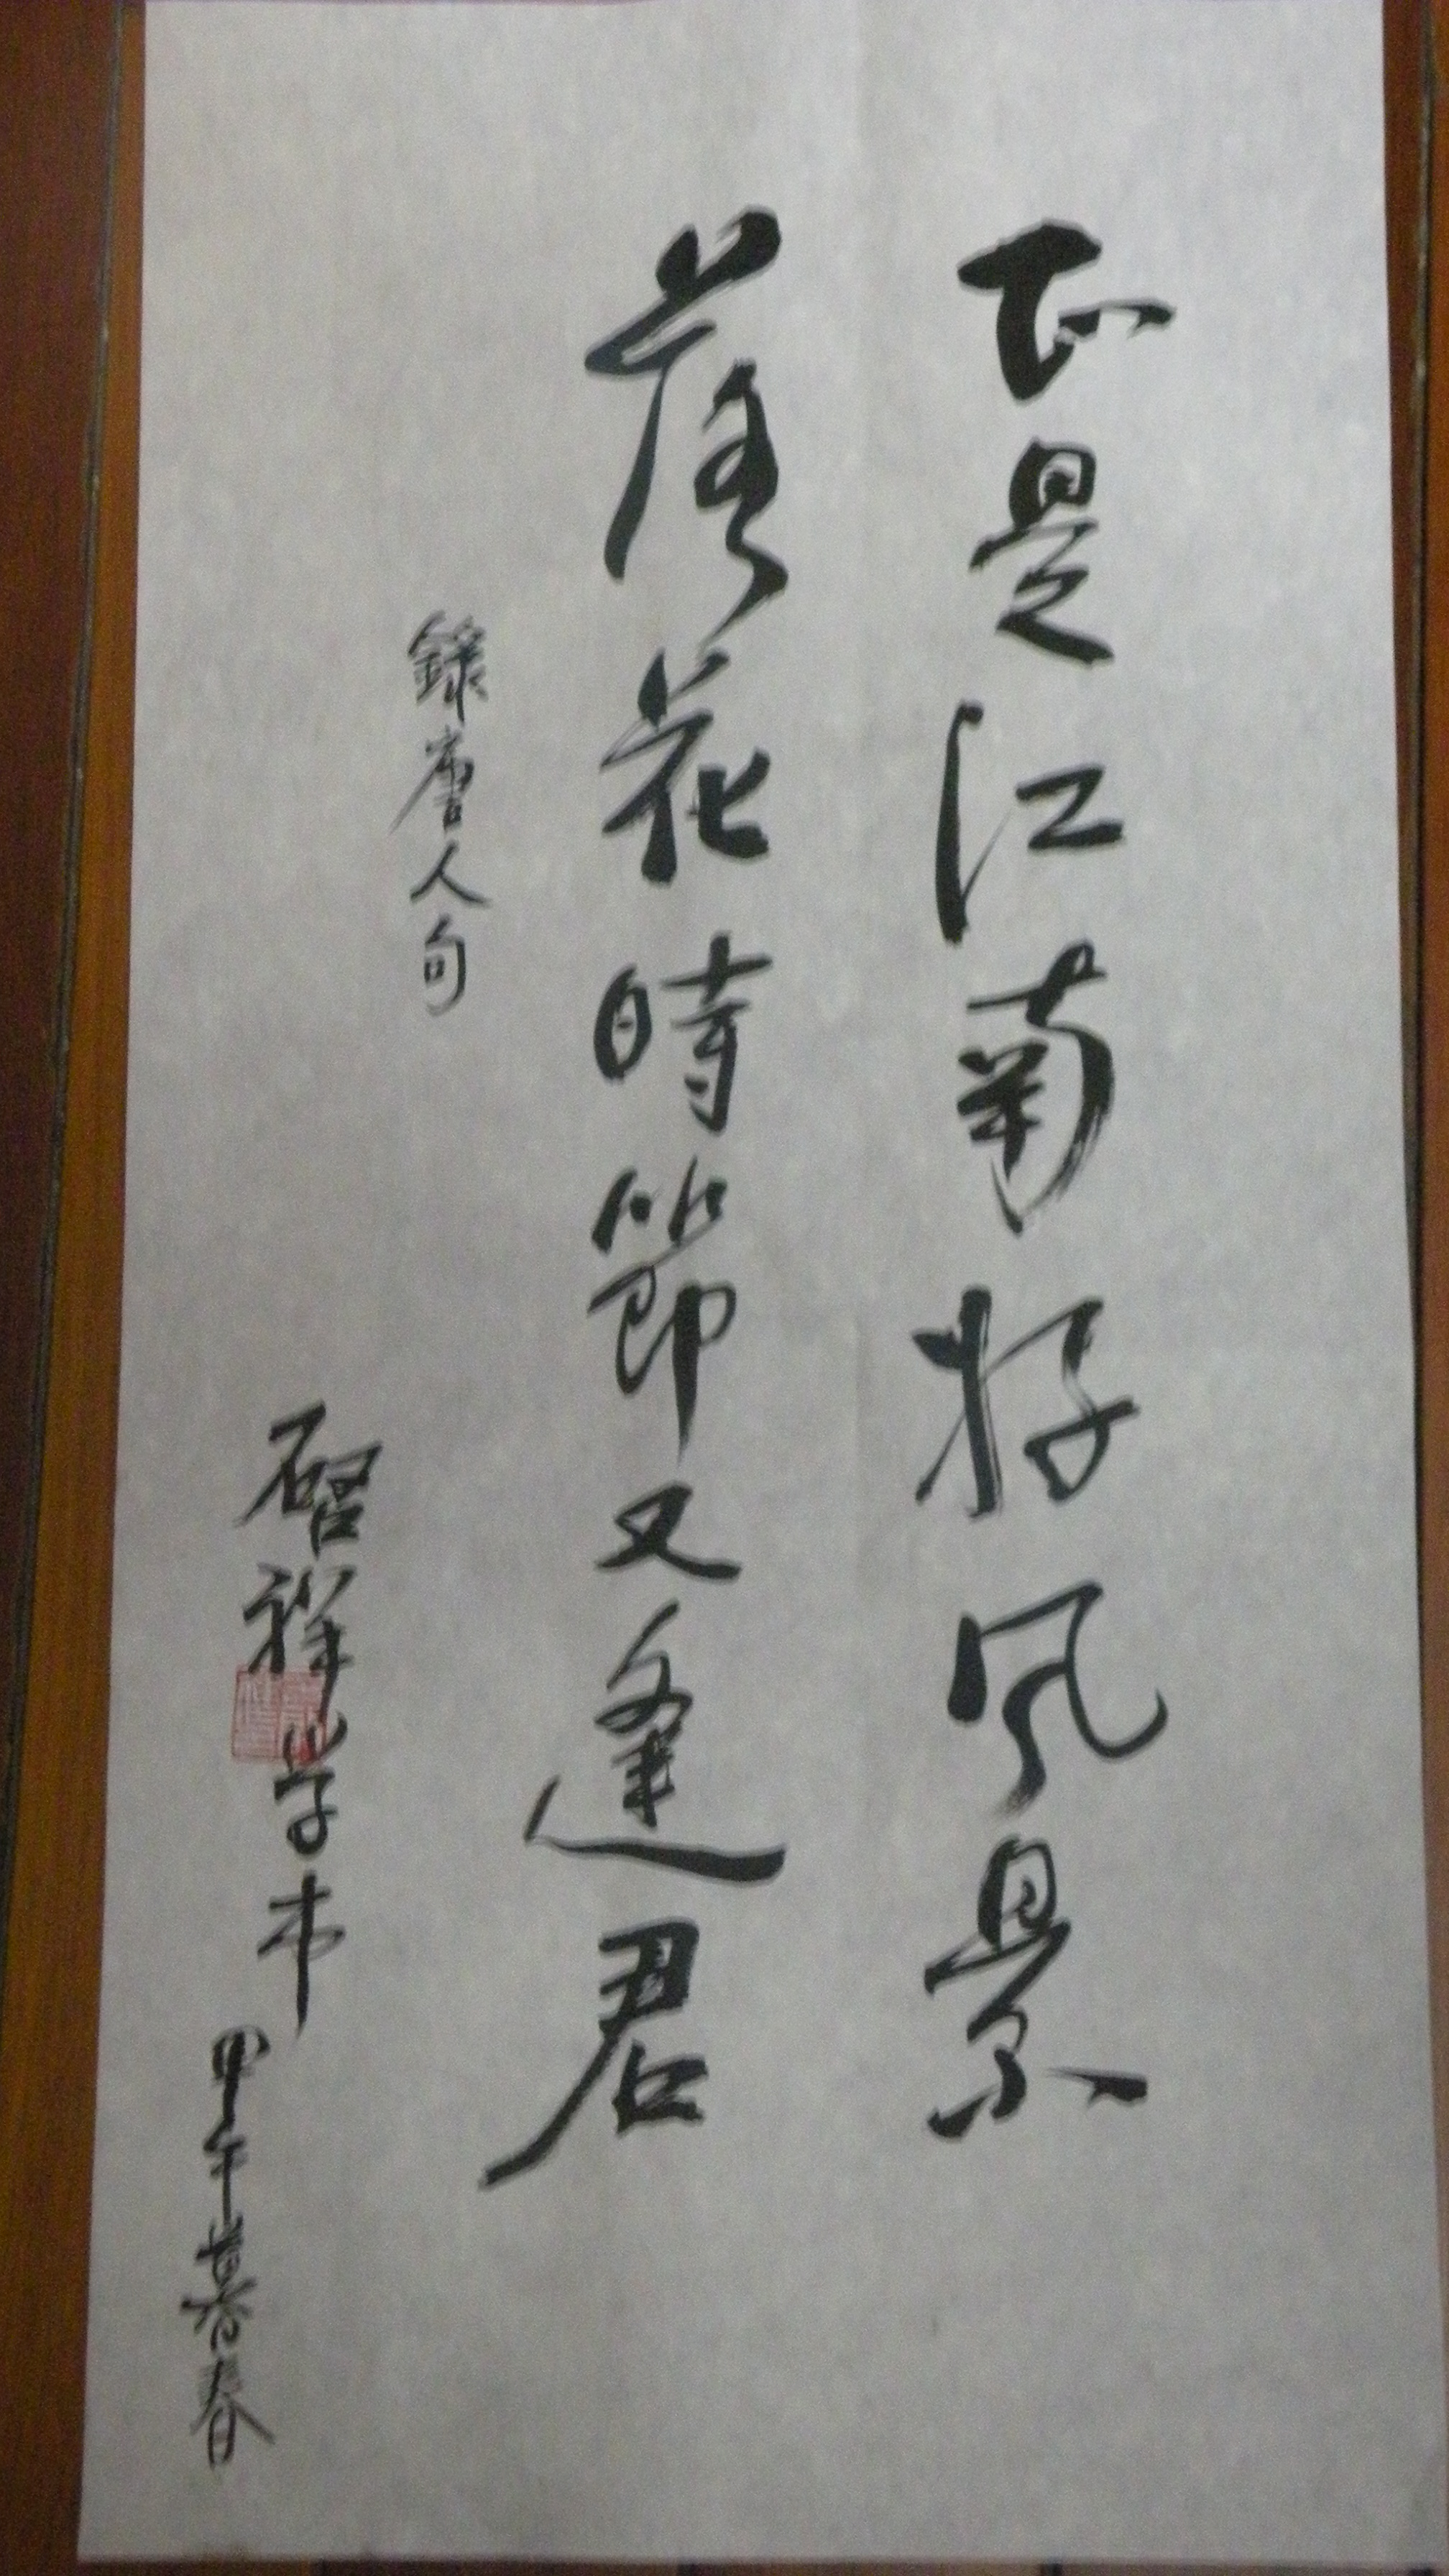 正是江南好风景
落花時節又逢君
録唐人句
啓祥学书
甲午暮春